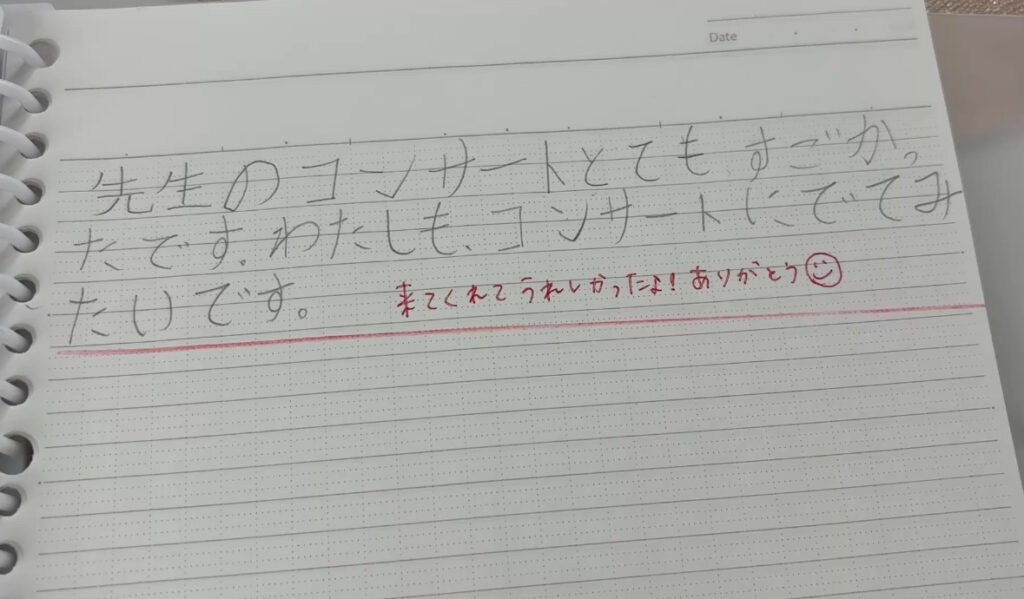 Date
先生のコンサートとてもすごかっ
たです。わたしも、コンサートにでてみ
たいです。
来てくれてうれしかったよ!ありがとう